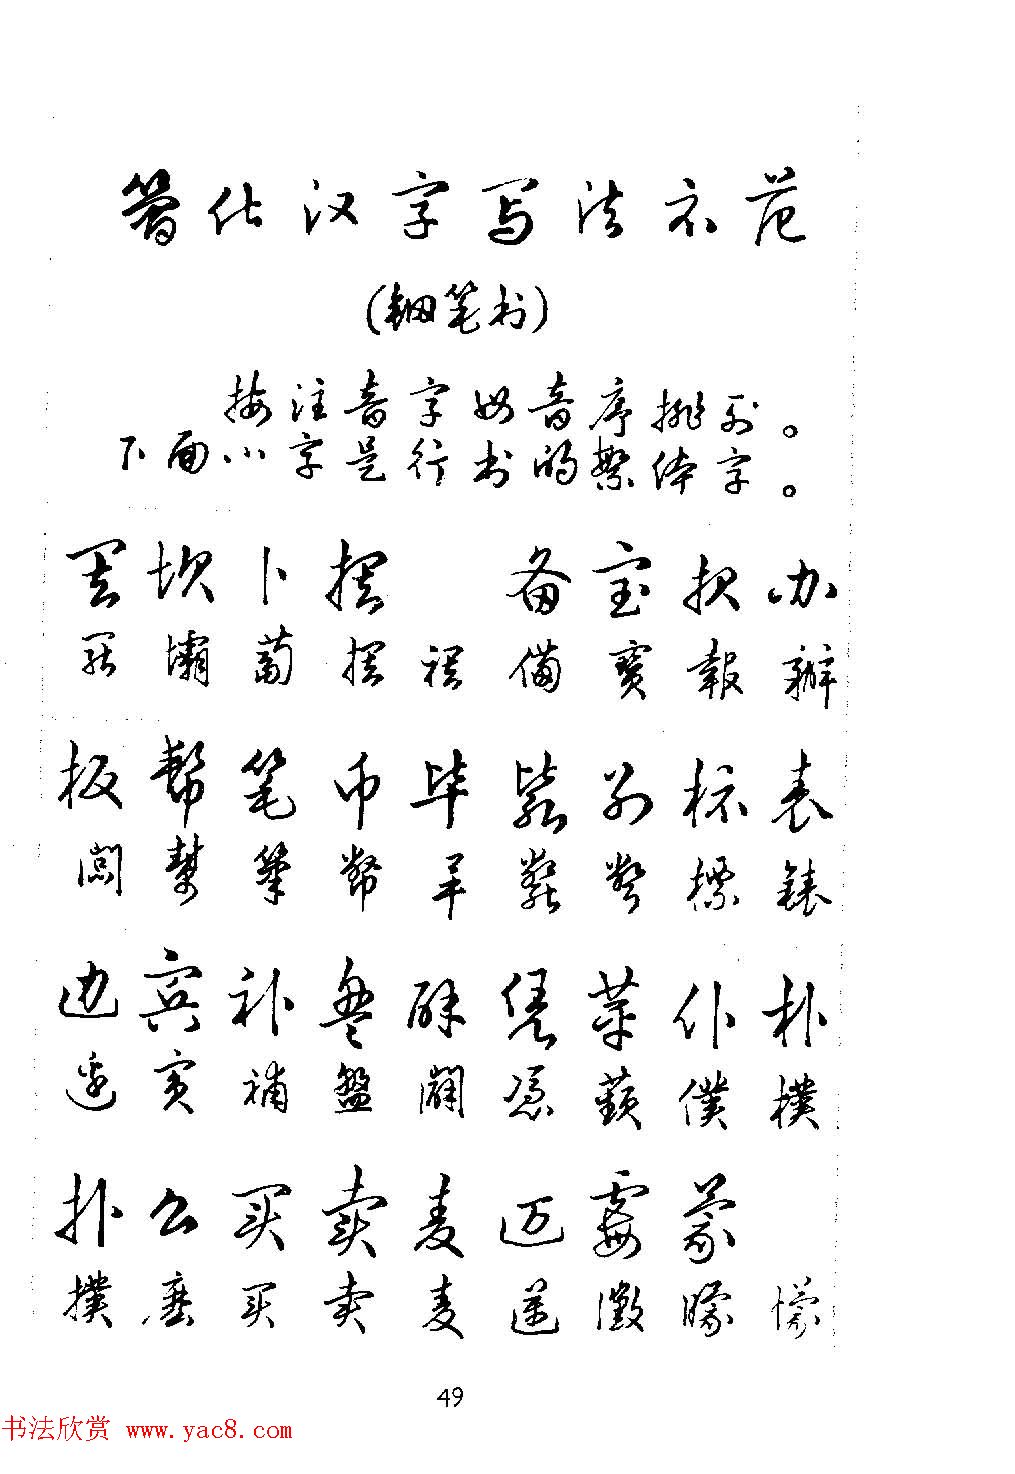 简化汉字写法示范
(钢笔书)
按注音字母音序排列。
下面小字是行书的繁体字。
罢 坝 卜 摆 备 宝 报 办
罷 壩 蔔 擺 襬 備 寶 報 辦
板 帮 笔 币 毕 毙 别 标 表
闆 幫 筆 幣 畢 斃 彆 標 錶
边 宾 补 盘 辟 凭 苹 仆 朴
邊 賓 補 盤 闢 憑 蘋 僕 樸
扑 么 买 卖 麦 迈 霉 蒙
撲 麼 買 賣 麥 邁 黴 矇 懞
49
书法欣赏 www.yac8.com